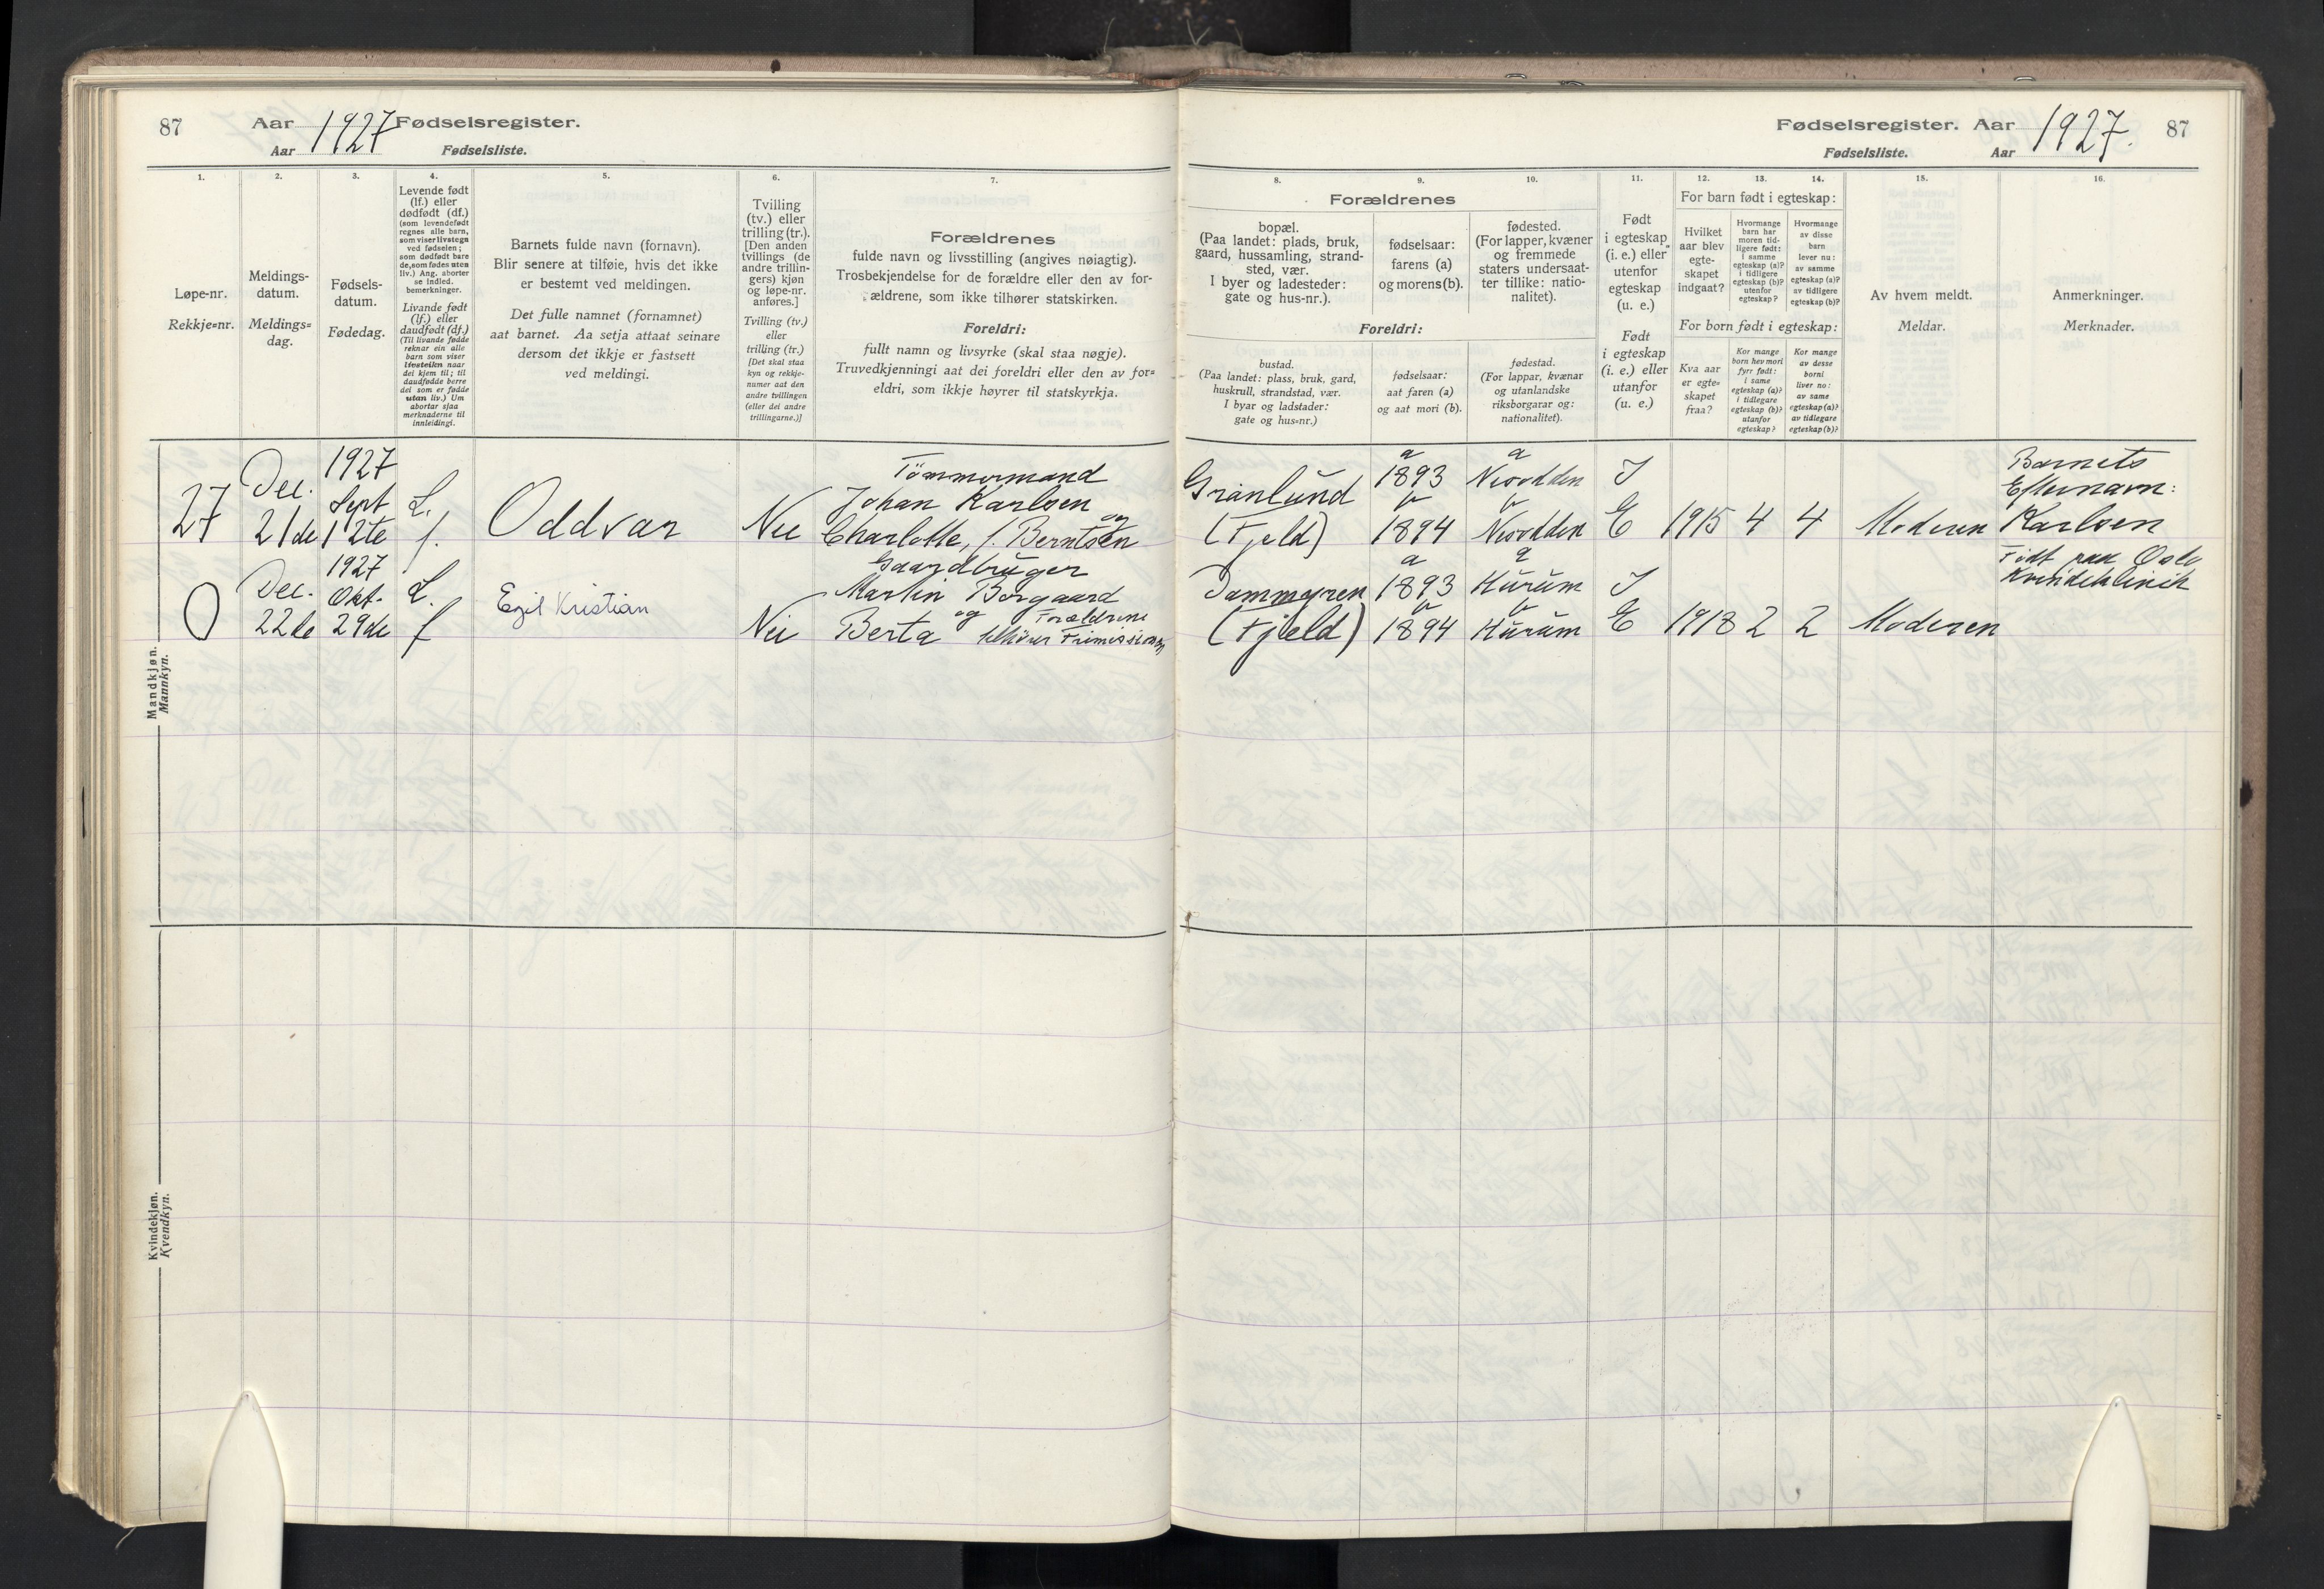 87
Aar 1927 Fødselsregister.
Aar
Fødselsliste.
1.
Løpe-nr.
Rekkje=nr.
2.
Meldings-
datum.
Meldings=
dag.
3.
Fødsels-
datum.
Fødedag.
4.
Levende født
(lf.) eller
dødfødt (df.)
(som levendefødt
regnes alle barn,
som viser livstegn
ved fødselen;
som dødfødt bare
de, som fødes uten
liv.) Ang. aborter
se indled.
bemerkninger.
Livande født
(lf.) eller
daudfødt (df.)
(Til livande fødde
reknar ein alle
barn som viser
livsteikn naar
dei kjem til; til
daudfødde berre
dei som er fødde
utan liv.) Um
abortar sjaa
merknaderne til
innleidingi.
5.
Barnets fulde navn (fornavn).
Blir senere at tilføie, hvis det ikke
er bestemt ved meldingen.
Det fulle namnet (fornamnet)
aat barnet. Aa setja attaat seinare
dersom det ikkje er fastsett
ved meldingi.
6.
Tvilling
(tv.) eller
trilling (tr.).
[Den anden
tvillings (de
andre trillin-
gers) kjøn
og løpe-nr.
anføres.]
Tvilling (tv.)
eller
trilling (tr.)
[Det skal staa
kyn og rekkje-
numer aat den
andre tvillingen
(eller dei andre
trillingarne.)]
7.
Forældrenes
fulde navn og livsstilling (angives nøiagtig).
Trosbekjendelse for de forældre eller den av for-
ældrene, som ikke tilhører statskirken.
Foreldri:
fullt namn og livsyrke (skal staa nøgje).
Truvedkjenningi aat dei foreldri eller den av for=
eldri, som ikkje høyrer til statskyrkja.
Mandkjøn.
Mannkyn.
27
Dec.
21de
1927
Sept
12te
L.
f.
Oddvar
Nei
Tömmermand
Johan Karlsen
og
Charlotte, f. Berntsen
0
Dec.
22de
1927
Okt.
29de
L.
f
Egil Kristian
Nei
Gaardbruger
Martin Borgaard
og Forældrene
Berta tilhörer Frimissionen
Kvindekjøn.
Kvendkyn.
Fødselsregister. Aar 1927. 87
Fødselsliste.
Aar
8.
Forældrenes
bopæl.
(Paa landet: plads, bruk,
gaard, hussamling, strand-
sted, vær.
I byer og ladesteder:
gate og hus-nr.).
Foreldri:
bustad.
(Paa landet: plass, bruk, gard,
huskrull, strandstad, vær.
I byar og ladstader:
gate og hus=nr.)
9.
fødselsaar:
farens (a)
og morens (b).
fødselsaar:
aat faren (a)
og aat mori (b).
10.
fødested.
(For lapper, kvæner
og fremmede
staters undersaat-
ter tillike: natio-
nalitet).
fødestad.
(For lappar, kvænar
og utanlandske
riksborgarar og:
nationalitet).
11.
Født
i egteskap
(i. e.) eller
utenfor
egteskap
(u. e.)
Født
i egteskap
(i. e.) eller
utanfor
(u. e.)
12.
13.
14.
For barn født i egteskap:
Hvilket
aar blev
egte-
skapet
indgaat?
Hvormange
barn har
moren tid-
ligere født:
i samme
egteskap (a)?
i tidligere
egteskap (b)?
utenfor
egteskap?
Hvormange
av disse
barn
lever nu:
av samme
egteskap (a)?
av tidligere
egteskap (b)?
For born født i egteskap:
Kva aar
er egte=
skapet
fraa?
Kor mange
born hev mori
fyrr født:
i same
egteskap (a)?
i tidlegare
egteskap (b)?
utanfor
egteskap?
Kor mange
av desse
borni
liver no:
av same
egteskap (a)?
av tidlegare
egteskap (b)?
15.
Av hvem meldt.
Meldar.
16.
Anmerkninger.
Merknader.
Granlund
(Fjeld)
a
1893
b
1894
a
Nesodden
b
Nesodden
I
E
1915
4
4
Moderen
Barnets
Efternavn:
Karlsen
Dammyren
(Fjeld)
a
1893
b
1894
a
Hurum
b
Hurum
I
E
1918
2
2
Moderen
Födt paa Oslo
Kvindeklinik